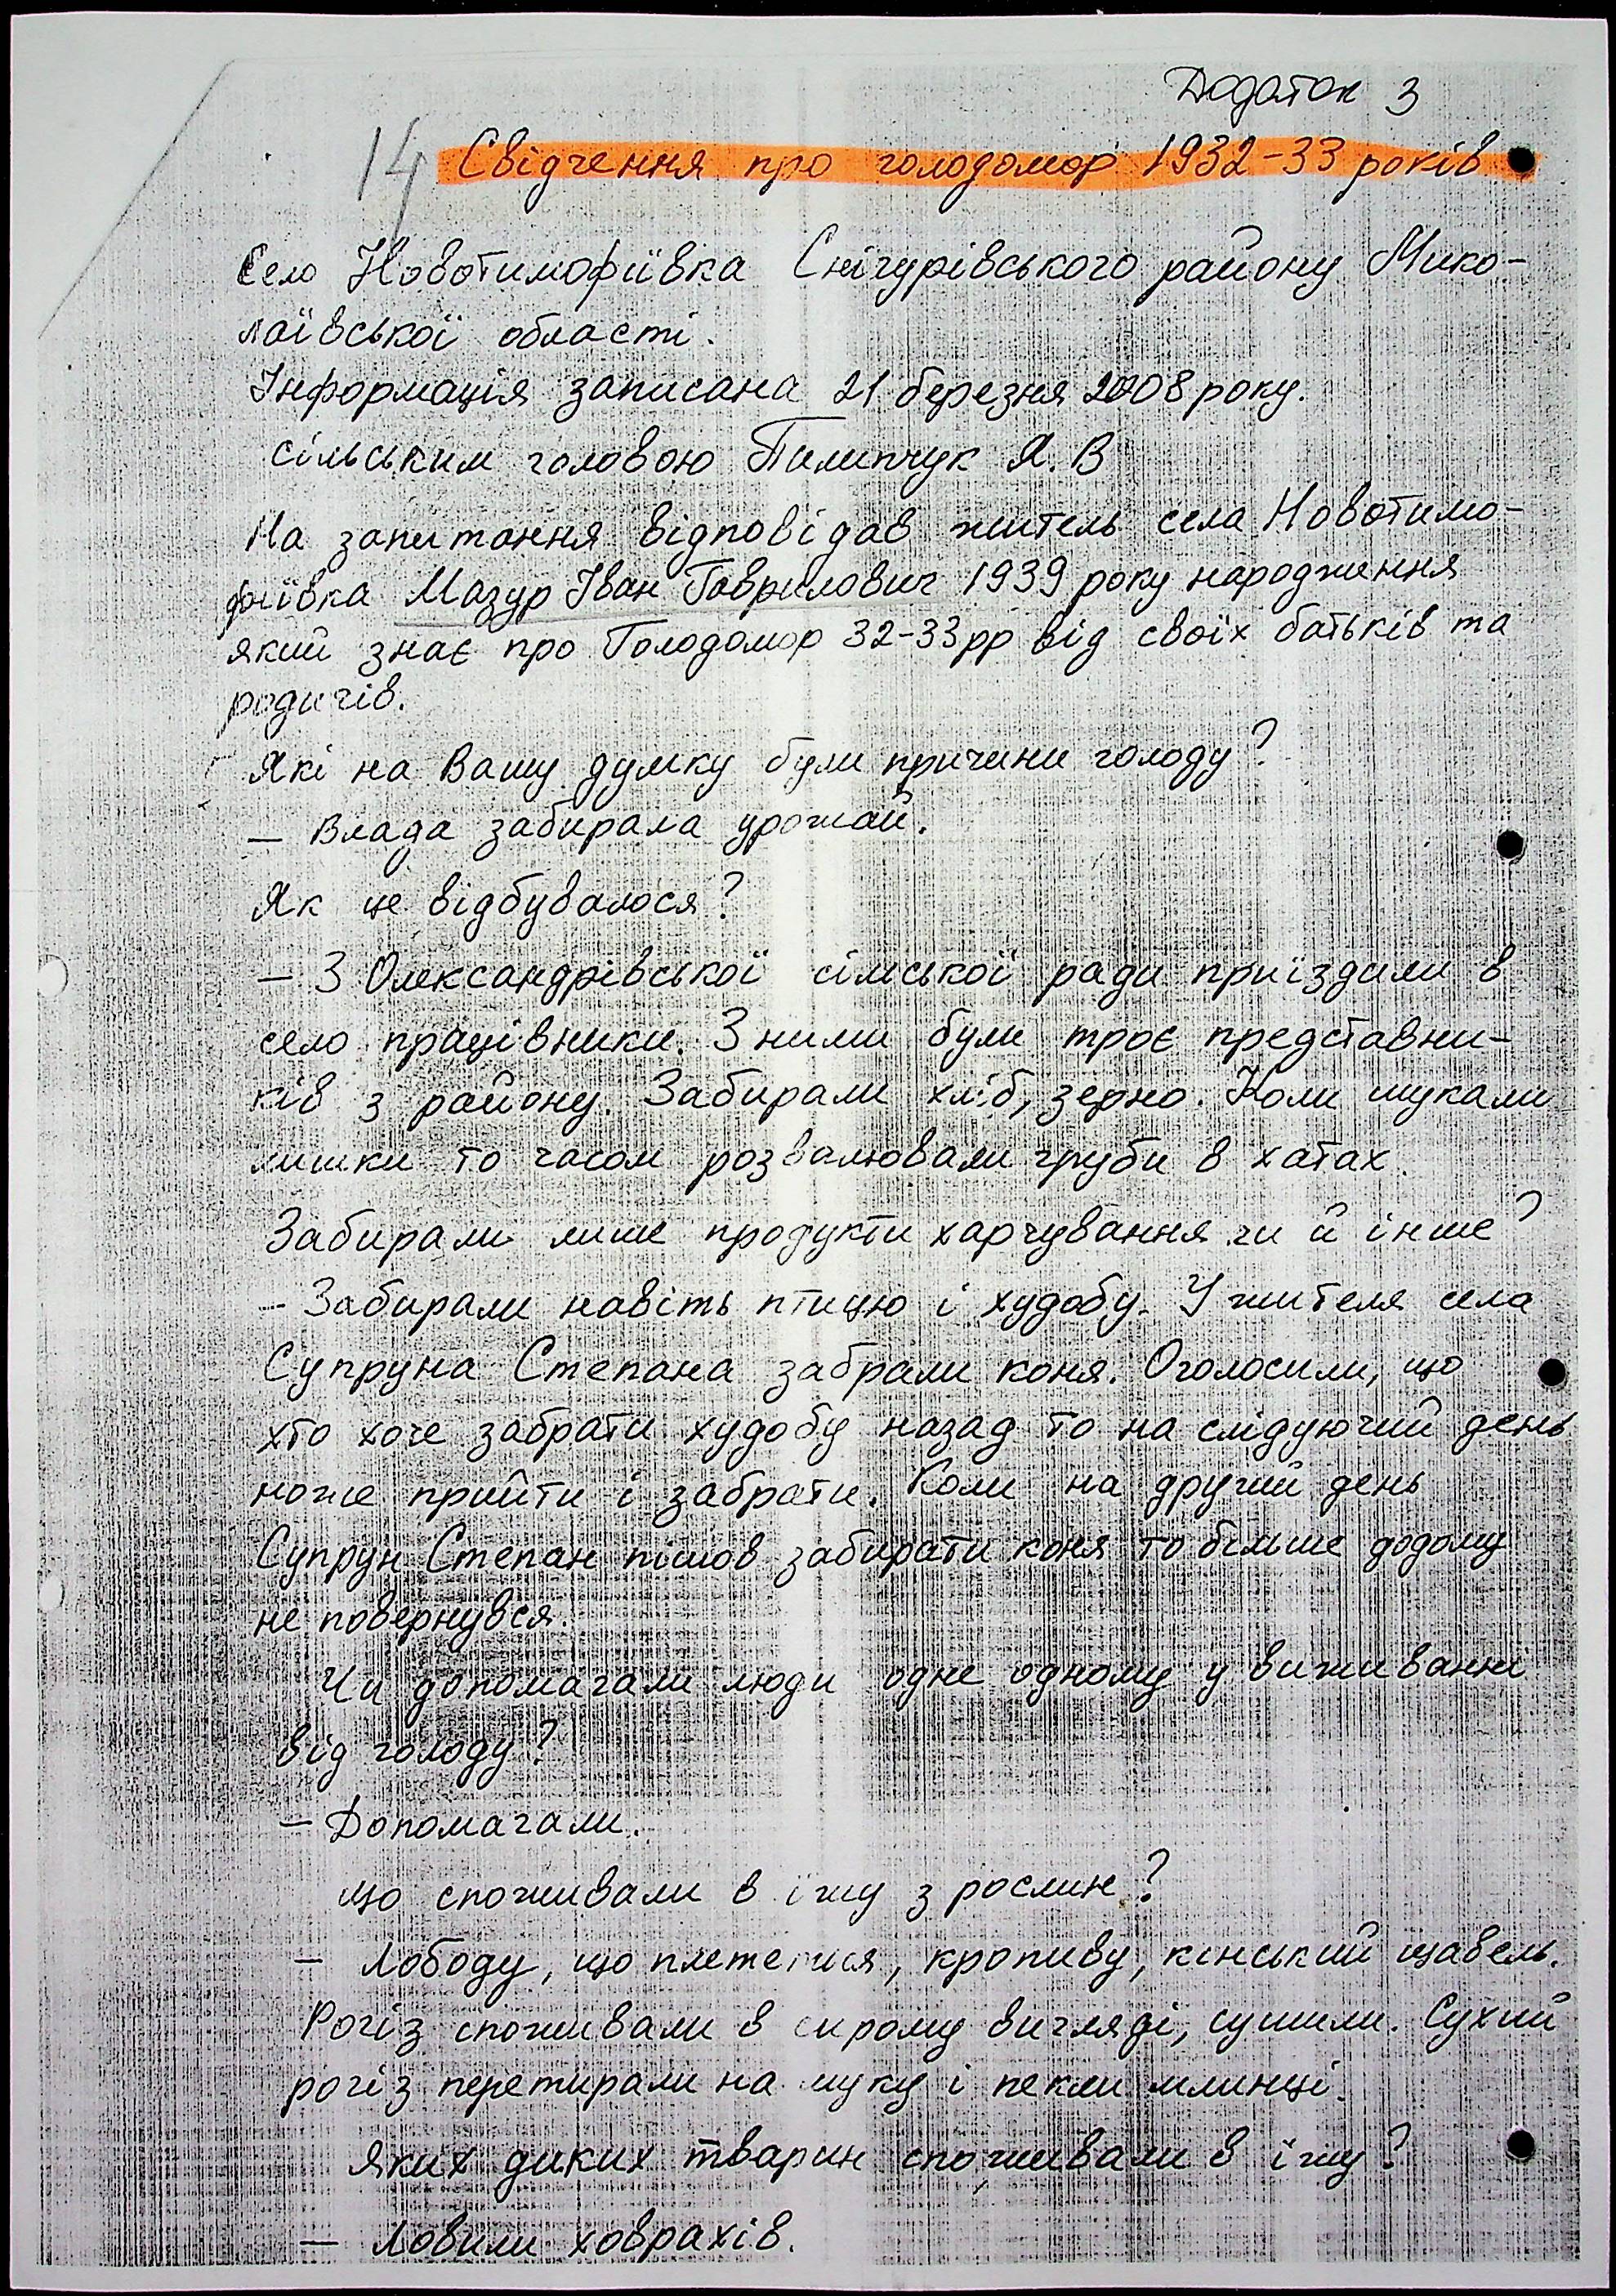 Додаток 3
14 Свідчення про голодомор 1932-33 років
Село Новотимофіївка Снігурівського району Мико-
лаївської області.
Інформація записана 21 березня 2008 року.
сільським головою Пилипчук Я. В
На запитання відповідав житель села Новотимо-
фіївка Мазур Іван Гаврилович 1939 року народження
який знає про Голодомор 32-33рр від своїх батьків та
родичів.
Які на Вашу думку були причини голоду?
- Влада забирала урожай.
Як це відбувалося?
- З Олександрівської сільської ради приїздили в
село працівники. З ними були троє представни-
ків з району. Забирали хліб, зерно. Коли шукали
лишки то часом розвалювали груби в хатах.
Забирали лише продукти харчування чи й інше?
- Забирали навіть птицю і худобу. У жителя села
Супруна Степана забрали коня. Оголосили, що
хто хоче забрати худобу назад то на слідуючий день
може прийти і забрати. Коли на другий день
Супрун Степан пішов забирати коня то більше додому
не повернувся.
Чи допомагали люди одне одному у виживанні
від голоду?
- Допомагали.
Що споживали в їжу з рослин?
- Лободу, що плететься, кропиву, кінський щавель.
Рогіз споживали в сирому вигляді, сушили. Сухий
рогіз перетирали на муку і пекли млинці.
Яких диких тварин споживали в їжу?
- Ловили ховрахів.